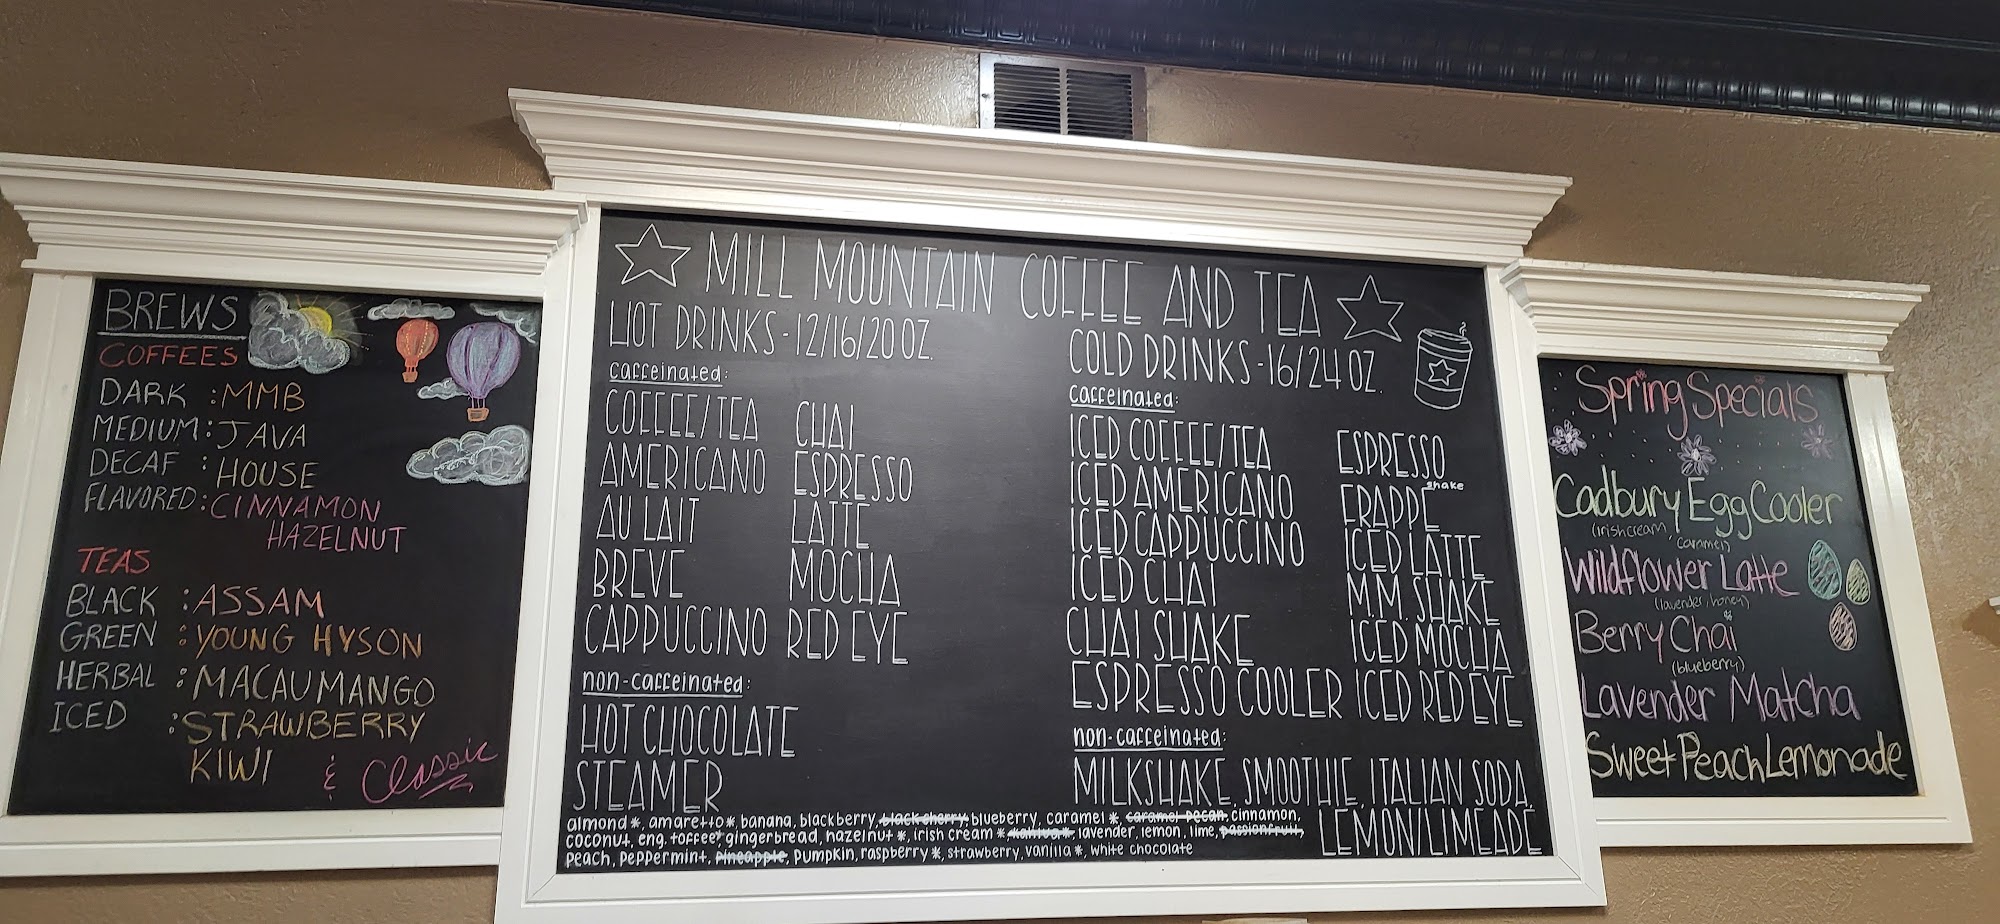 BREWS
COFFEES
DARK : MMB
MEDIUM: JAVA
DECAF : HOUSE
FLAVORED: CINNAMON
HAZELNUT
TEAS
BLACK : ASSAM
GREEN : YOUNG HYSON
HERBAL : MACAU MANGO
ICED : STRAWBERRY
KIWI & Classic
MILL MOUNTAIN COFFEE AND TEA
HOT DRINKS - 12/16/20 OZ.
caffeinated:
COFFEE/TEA CHAI
AMERICANO ESPRESSO
AU LAIT LATTE
BREVE MOCHA
CAPPUCCINO RED EYE
non-caffeinated:
HOT CHOCOLATE
STEAMER
COLD DRINKS - 16/24 OZ.
caffeinated:
ICED COFFEE/TEA ESPRESSO shake
ICED AMERICANO FRAPPE
ICED CAPPUCCINO ICED LATTE
ICED CHAI M.M. SHAKE
CHAI SHAKE ICED MOCHA
ESPRESSO COOLER ICED RED EYE
non-caffeinated:
MILKSHAKE, SMOOTHIE, ITALIAN SODA,
LEMON/LIMEADE
almond*, amaretto*, banana, blackberry, black cherry, blueberry, caramel*, caramel pecan, cinnamon,
coconut, eng. toffee*, gingerbread, hazelnut*, irish cream* kahlua*, lavender, lemon, lime, passionfruit,
peach, peppermint, pineapple, pumpkin, raspberry*, strawberry, vanilla*, white chocolate
Spring Specials
Cadbury Egg Cooler
(irish cream, caramel)
Wildflower Latte
(lavender, honey)
Berry Chai
(blueberry)
Lavender Matcha
Sweet Peach Lemonade